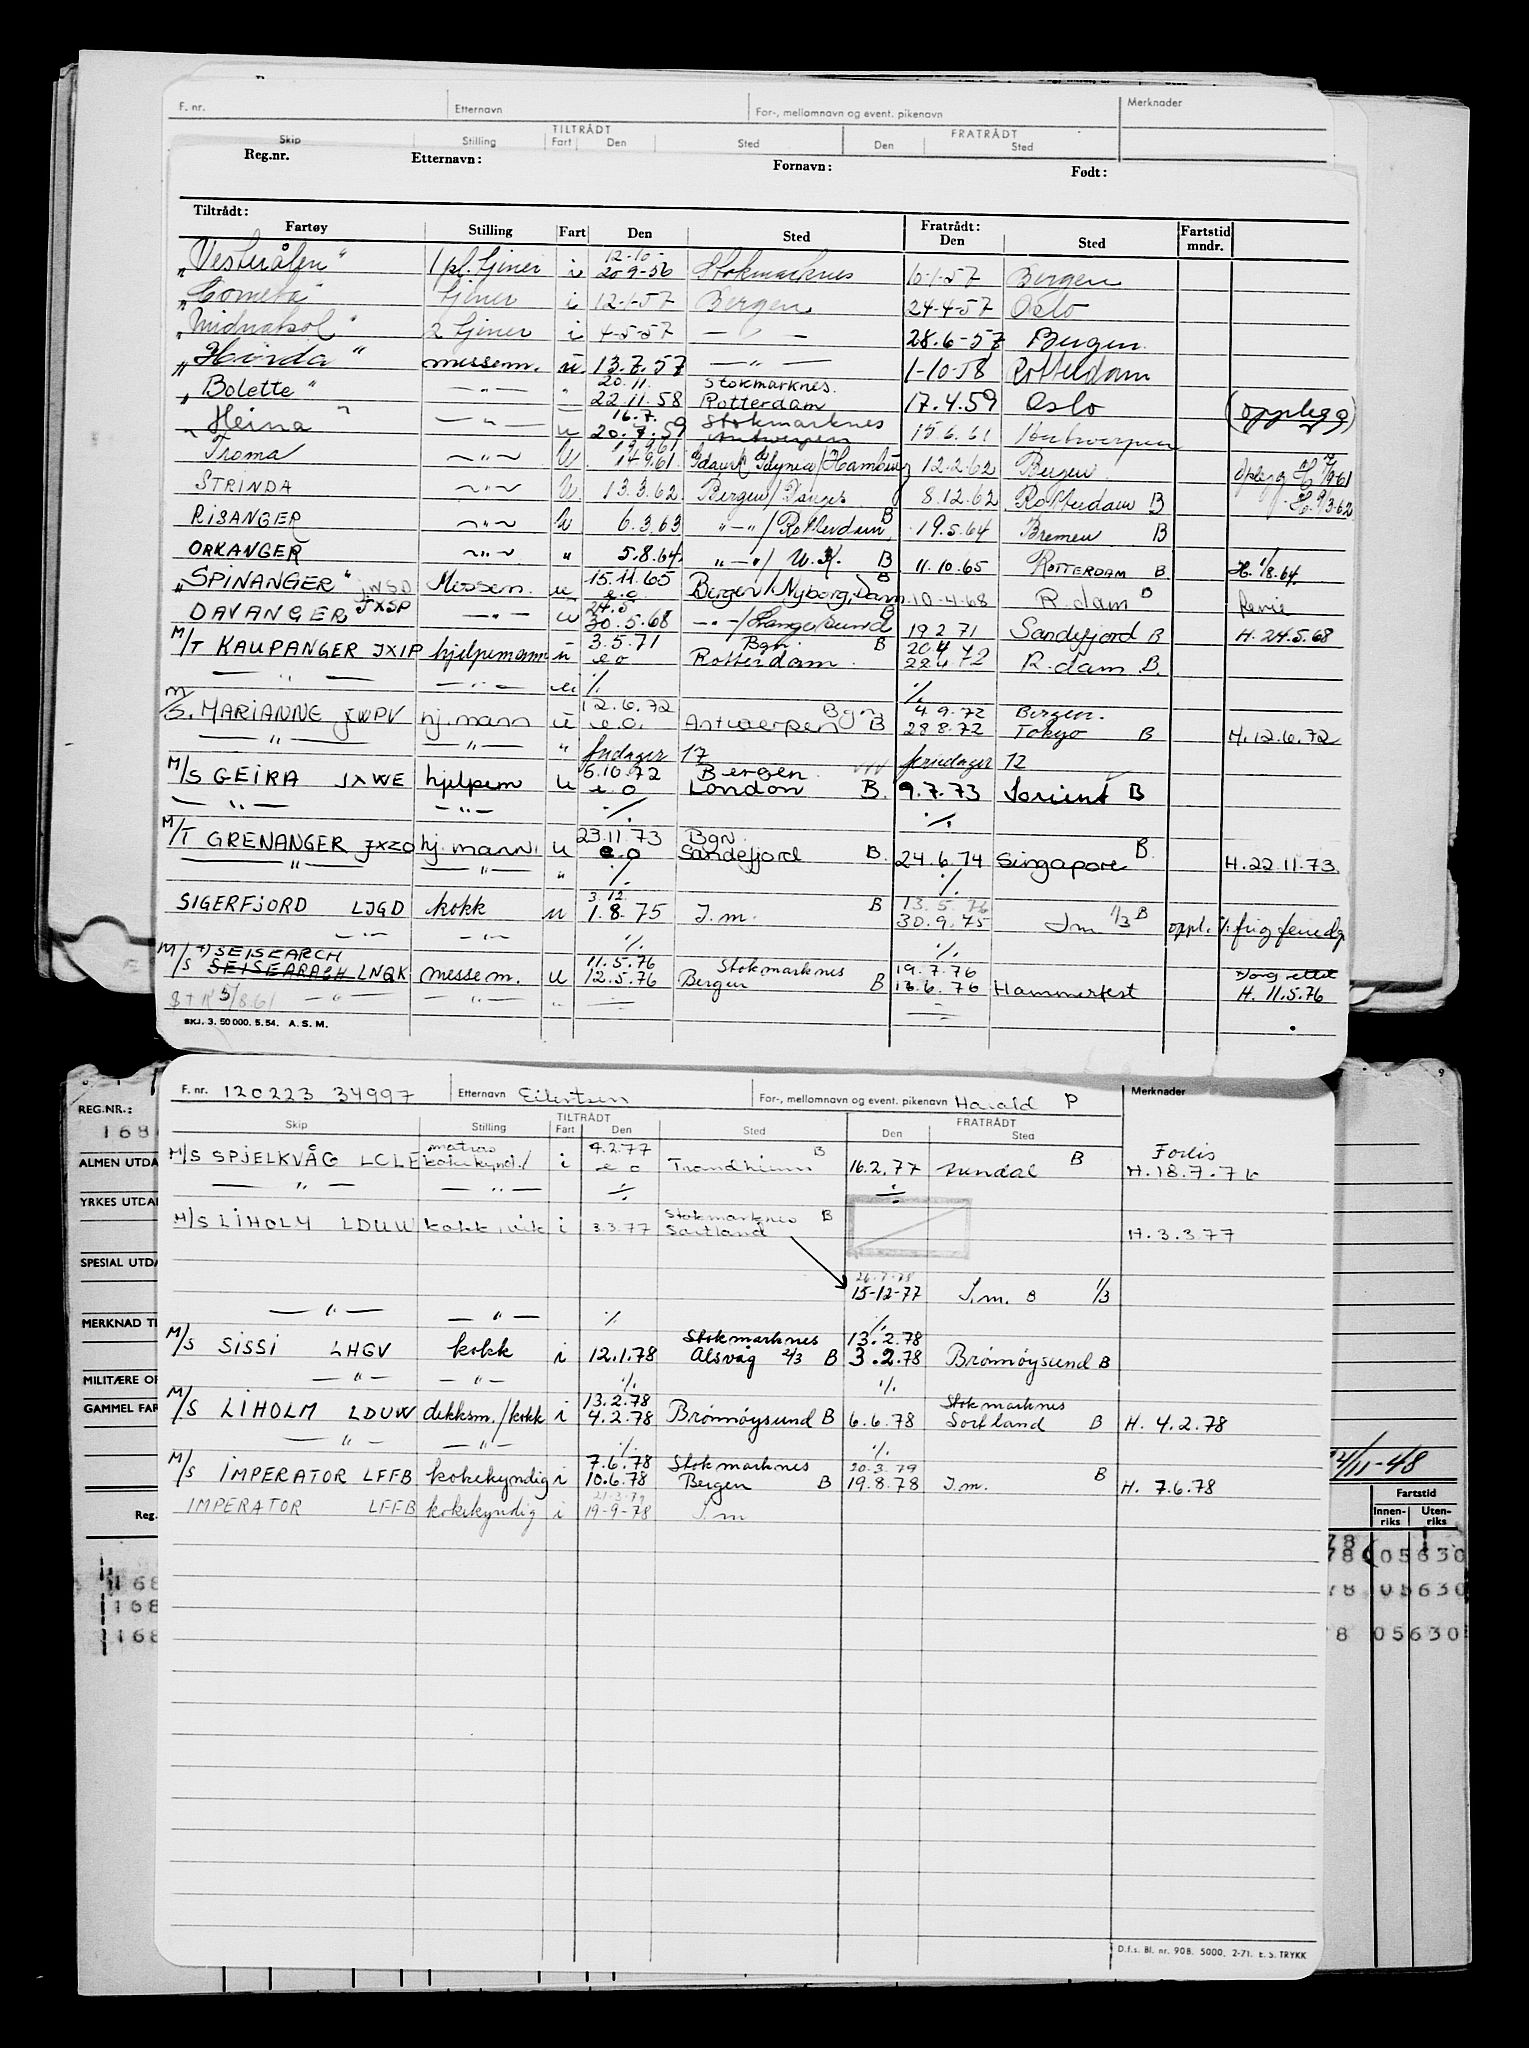 F. nr. Etternavn For-, mellomnavn og event. pikenavn Merknader
Skip Stilling TILTRÅDT Fart Den Sted Den FRATRÅDT Sted
Reg.nr. Etternavn: Fornavn: Født:
Tiltrådt: Fartøy Stilling Fart Den Sted Fratrådt: Den Sted Fartstid mndr.
12-10-
„Vesterålen" 1 pl. tjener i 20-9-56 Stokmarknes 10-1-57 Bergen
„Cometa" tjener i 12-1-57 Bergen 24-4-57 Oslo
„Midnatsol" 2 tjener i 4-5-57 — " — 28.6-57 Bergen
„Hörda" messem. u 13.7.57 — " — 1-10-58 Rotterdam
20.11. Stokmarknes.
„Bolette" — " — " 22.11.58 Rotterdam 17.4.59 Oslo (opplegg)
16.7. Stokmarknes
„Heina" — " — u 20.7.59 Antwerpen 15.6.61 Antwerpen
13.9.61
Troma — " — U 14.9.61 Gdansk Gdynia/Hamburg 12.2.62 Bergen
STRINDA — " — U 13.3.62 Bergen/ 8.12.62 Rotterdam B
RISANGER — " — U 6.3.63 " — " /Rotterdam B 19.5.64 Bremen B
ORKANGER — " — " 5.8.64 " — " / U.K. B 11.10.65 ROTTERDAM B. H. 1/8.64
15.11.65 B
„SPINANGER" JWSD Messem. u e.o. Bergen/Nyborg, Dam 10-4-68 R.dam B ferie
24.5 B
DAVANGER JXSP — " — u 30.5.68 — " — /Langesund 19.2.71 Sandefjord B H. 24.5.68
3.5.71 Bgn. B 20.4.72
M/T KAUPANGER JXIP hjelpemann u e o Rotterdam. 22.4.72 R.dam B.
— " — — " — u ./. ./.
12.6.72 Bgn 4.9.72 Bergen.
M/S. MARIANNE JWPV hj.mann u e.o. Antwerpen B 28.8.72 Tokyo B H. 12.6.72
— " — — " — " fridager 17 feriedager 12
6.10.72 Bergen
M/S GEIRA JXWE hjelpem u e.o London B. 9.7.73 Lorient B
— " — — " — ./. ./.
23.11.73 Bgn.
M/T GRENANGER JXZO hj.mann. u e o Sandefjord B. 24.6.74 Singapore B. H. 22.11.73.
— " — — " — " ./. ./.
3.12. 13.5.76
SIGERFJORD LJGD kokk u 1.8.75 J.m. B 30.9.75 Jm 1/3 B oppl. ./. frig feriedg
— " — — " — ./. ./.
*) SEISEARCH 11.5.76 Stokmarknes 19.7.76
M/S SEISEARACH LNQK messem. u 12.5.76 Bergen B 13.6.76 Hammerfest H. 11.5.76
5/8.61 — " — — " — "
SKJ. 3. 50 000. 5. 54. A. S. M.
F. nr. 120223 34997 Etternavn Eilertsen For-, mellomnavn og event. pikenavn Harald P Merknader
Skip Stilling TILTRÅDT Fart Den Sted Den FRATRÅDT Sted
REG.NR.:
168
matros 4.2.77 B
M/S SPJELKVÅG LCLE kokekynd./ i e o Trondheim 16.2.77 Sundal B H. 18.7.76
ALMEN UTDA
— " — — " — ./. ./.
YRKES UTDA
Stokmarknes B
M/S LIHOLM LDUW kokk i 3.3.77 Sortland H. 3.3.77
SPESIAL UTDA
26.7.78
15-12-77 J.m. B 1/3
— " — — " — ./. ./.
MERKNAD TI
Stokmarknes 13.2.78
M/S SISSI LHGV kokk i 12.1.78 Alsvåg 2/3 B 3.2.78 Brønnøysund B
— " — — " — ./. ./.
MILITÆRE OP
13.2.78 Stokmarknes
M/S LIHOLM LDUW dekksm./kokk i 4.2.78 Brønnøysund B 6.6.78 Sortland B H. 4.2.78
GAMMEL FAR
— " — — " — ./. ./.
7.6.78 Stokmarknes 20.3.79
M/S IMPERATOR LFFB kokekyndig i 10.6.78 Bergen B 19.8.78 J.m. B H. 7.6.78
/11-48
21.3.79
IMPERATOR LFFB kokekyndig i 19-9-78 J.m
Reg. Fartstid
Innenriks Utenriks
78
78 05630
168 78 05630
168
168 8 05630
D.f.s. Bl. nr. 90B. 5000. 2-71. E. S. TRYKK